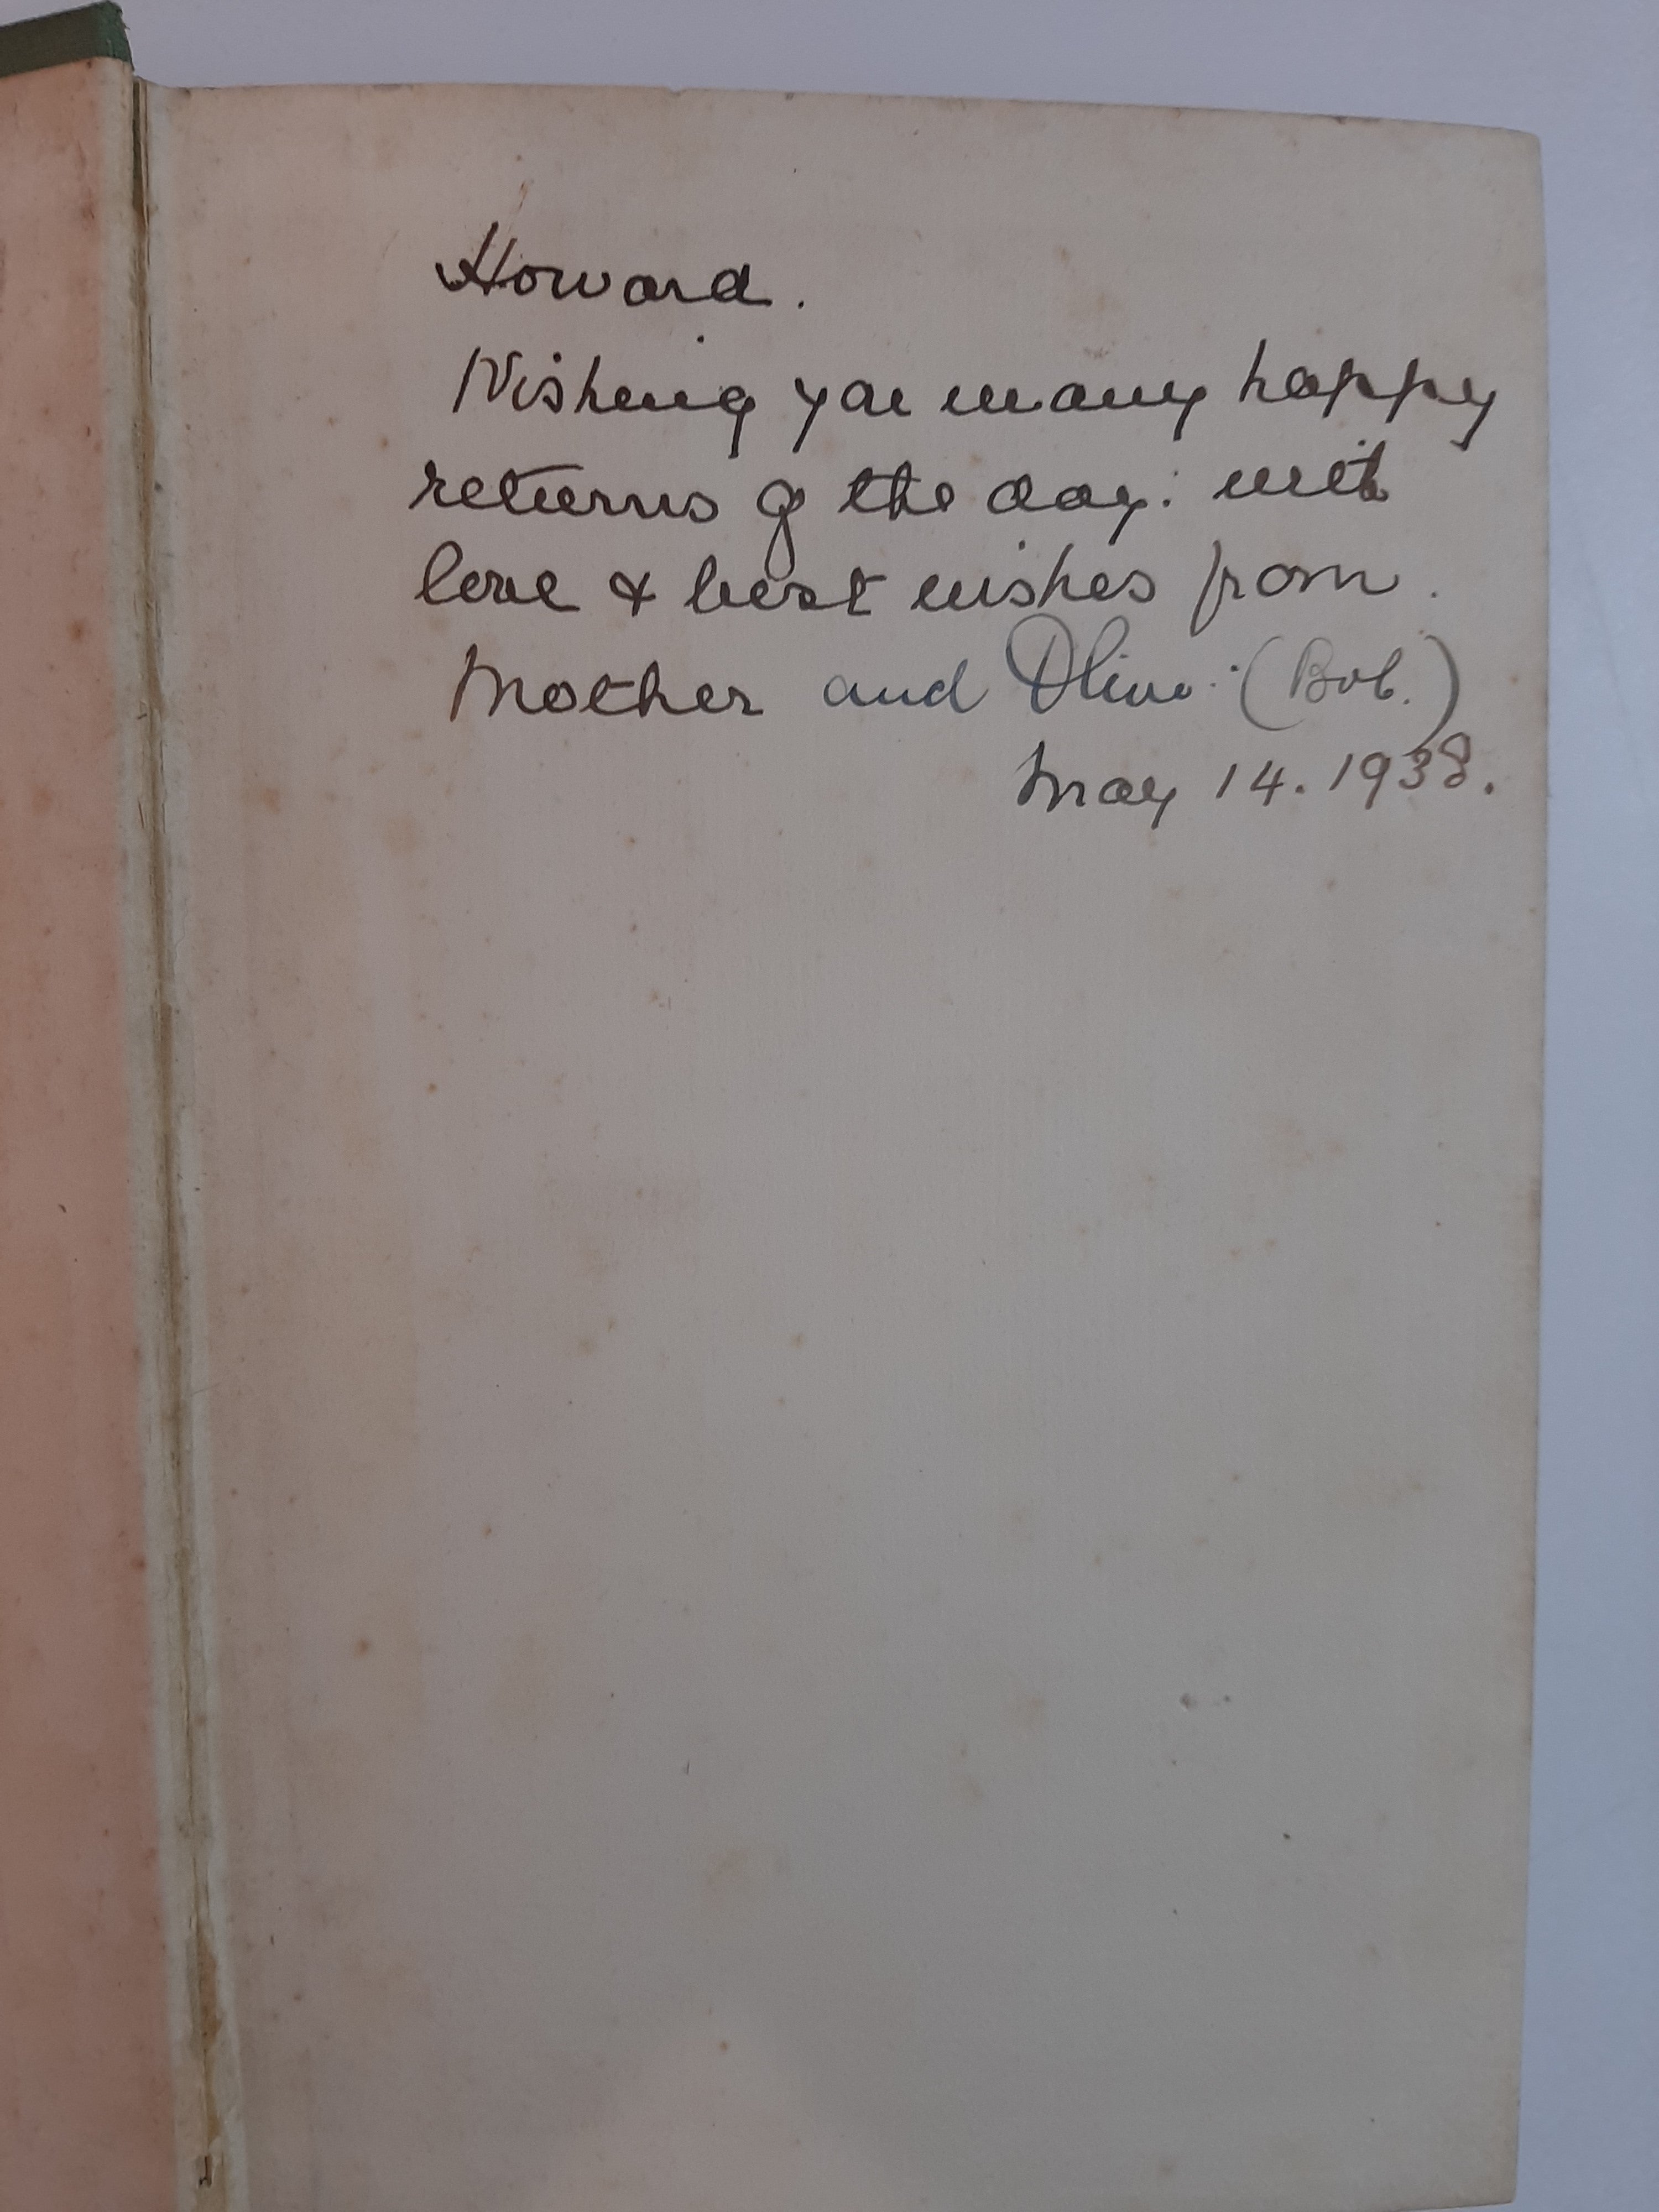 Howard.
Wishing you many happy
returns of the day: with
love & best wishes from.
Mother and Olive. (Bob.)
May 14. 1938.